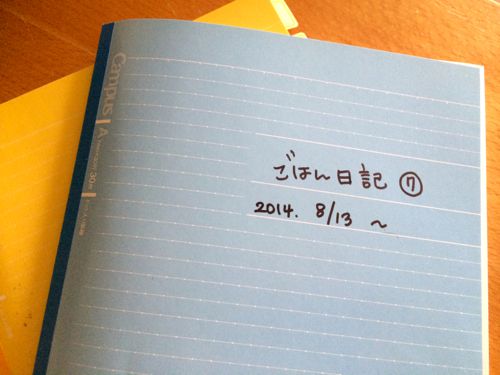 ごはん日記 ⑦
2014. 8/13 ～
Campus
A
30